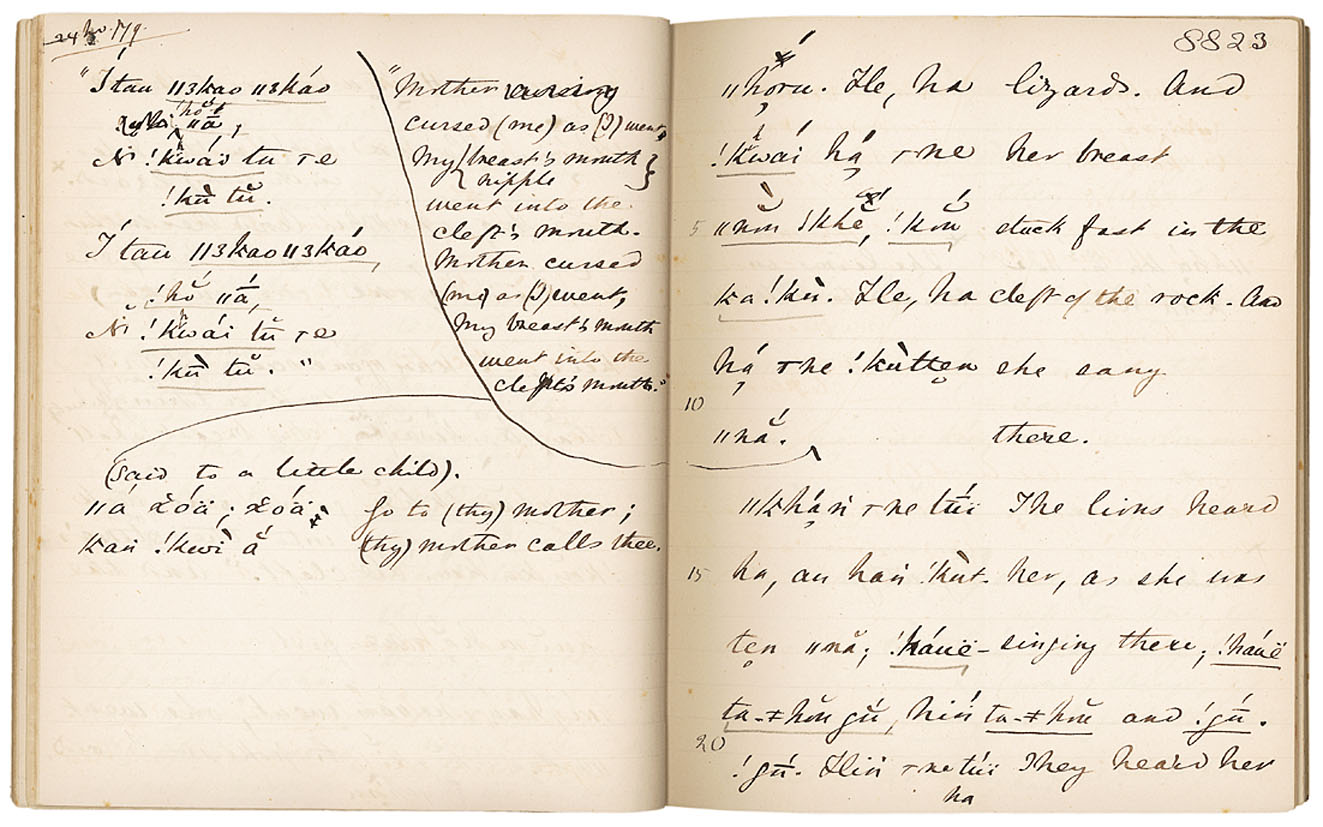 24 Nov. 79.
"Ítau ǁʒkao ǁʒkáo
!hŏ ǁā́,
Ň !kʰwái tŭ ͵ne
!kù̄ tŭ.
Ítau ǁʒkao ǁʒkáo,
!hŏ́ ǁā́,
Ň !kʰwái tŭ ͵ne
!kù̄ tŭ."
"Mother
cursed (me) as (I) went,
My {breast's mouth}
{nipple}
went into the
cleft's mouth.
Mother cursed
(me) as (I) went,
My breast's mouth
went into the
cleft's mouth."
(said to a little child).
ǁá xóä; xóä
kaṅ !kwì ắ
Go to (thy) mother;
(thy) mother calls thee.
8823
ǁhóru. He, ha lizards. And
!kʰwái hạ́ ͵ne her breast
5 ǁnŏṅ ǀkhĕ, !kŏṅ stuck fast in the
ka !kù̄. He, ha cleft of the rock. And
hạ́ ͵ne !kùttẹn she sang
10
ǁnắ. there.
ǁkhạ́ṅ ͵ne túï The lions heard
15 ha, au haṅ !kùt- her, as she was
tẹn ǁnă; !háuë- singing there; !háuë
ta-ǂhŏu gŭ, hiṅ ta-ǂhŏu and !gū́.
20
!gū́. Hiṅ ͵ne túï They heard her
ha